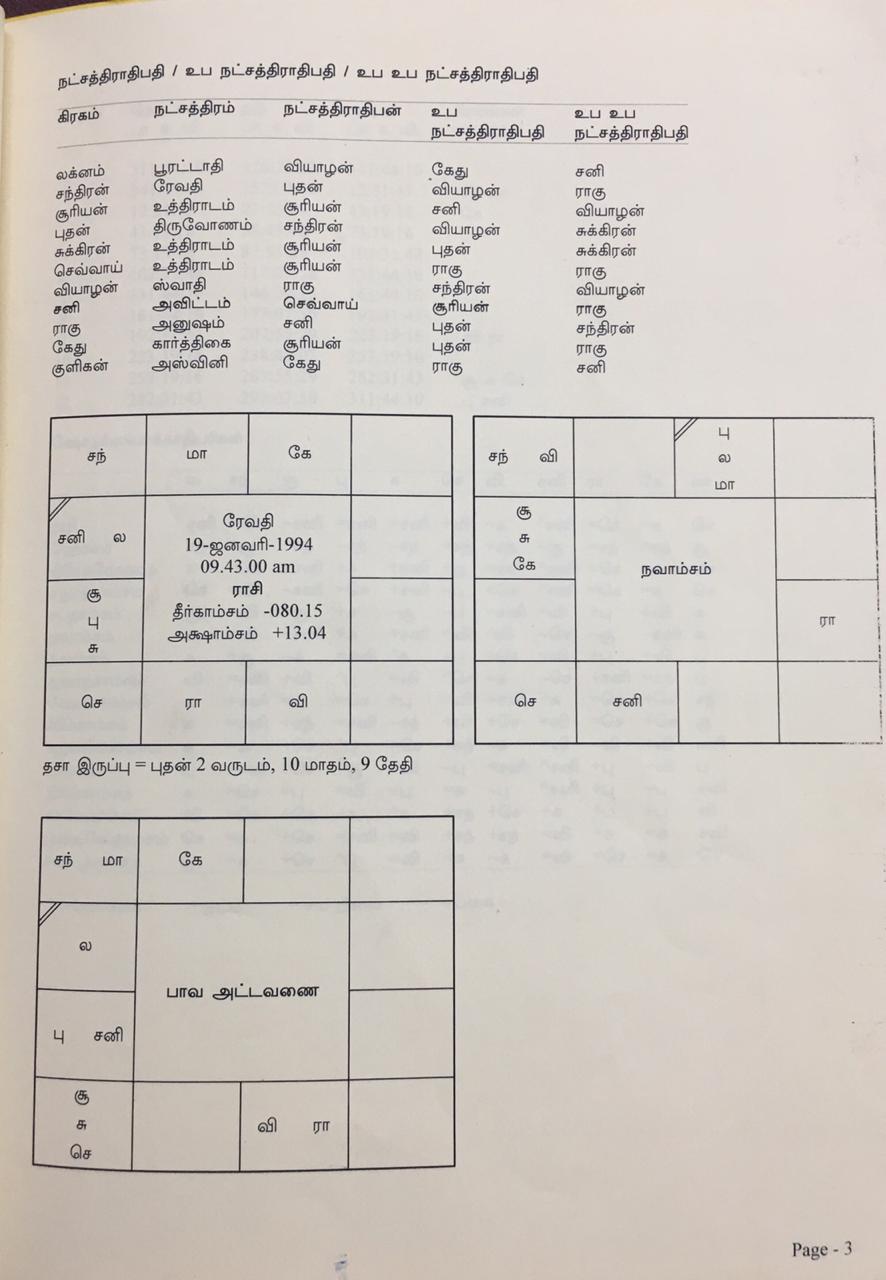 நட்சத்திராதிபதி / உப நட்சத்திராதிபதி / உப உப நட்சத்திராதிபதி
கிரகம் நட்சத்திரம் நட்சத்திராதிபன் உப நட்சத்திராதிபதி உப உப நட்சத்திராதிபதி
லக்னம் பூரட்டாதி வியாழன் கேது சனி
சந்திரன் ரேவதி புதன் வியாழன் ராகு
சூரியன் உத்திராடம் சூரியன் சனி வியாழன்
புதன் திருவோணம் சந்திரன் வியாழன் சுக்கிரன்
சுக்கிரன் உத்திராடம் சூரியன் புதன் சுக்கிரன்
செவ்வாய் உத்திராடம் சூரியன் ராகு ராகு
வியாழன் ஸ்வாதி ராகு சந்திரன் வியாழன்
சனி அவிட்டம் செவ்வாய் சூரியன் ராகு
ராகு அனுஷம் சனி புதன் சந்திரன்
கேது கார்த்திகை சூரியன் புதன் ராகு
குளிகன் அஸ்வினி கேது ராகு சனி
சந் மா கே
சனி ல
சூ
பு
சு
செ ரா வி
ரேவதி
19-ஜனவரி-1994
09.43.00 am
ராசி
தீர்காம்சம் -080.15
அக்ஷாம்சம் +13.04
சந் வி
பு
ல
மா
சூ
சு
கே
நவாம்சம்
ரா
செ சனி
தசா இருப்பு = புதன் 2 வருடம், 10 மாதம், 9 தேதி
சந் மா கே
ல
பாவ அட்டவணை
பு சனி
சூ
சு
செ
வி ரா
Page - 3